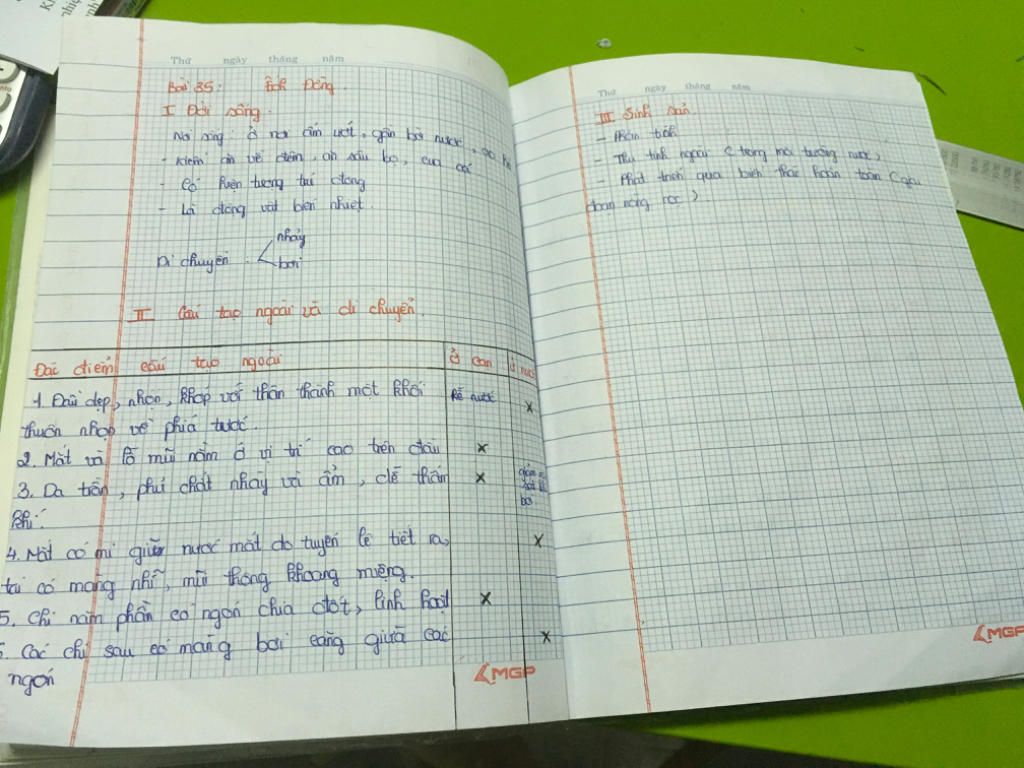 Thứ ngày tháng năm
Bài 35: Ếch Đồng.
I Đời sống.
Nơi sống: ở nơi ẩm ướt, gần bờ nước,
- Kiếm ăn về đêm, ăn sâu bọ, cua cá
- Có hiện tượng trú đông
- Là động vật biến nhiệt.
Di chuyển nhảy
bơi
II Cấu tạo ngoài và di chuyển.
Đặc điểm cấu tạo ngoài ở cạn ở nước
1. Đầu dẹp, nhọn, khớp với thân thành một khối rẽ nước x
thuôn nhọn về phía trước.
2. Mắt và lỗ mũi nằm ở vị trí cao trên đầu x
3. Da trần, phủ chất nhầy và ẩm, dễ thấm x
khí.
bơi
4. Mắt có mi giữ nước mắt do tuyến lệ tiết ra, x
tai có màng nhĩ, mũi thông khoang miệng.
5. Chi năm phần có ngón chia đốt, linh hoạt x
6. Các chi sau có màng bơi căng giữa các x
ngón
MGP
Thứ ngày tháng năm
III Sinh sản.
- Phân tính
- Thụ tinh ngoài (trong môi trường nước)
- Phát triển qua biến thái hoàn toàn (giai
đoạn nòng nọc)
MGP